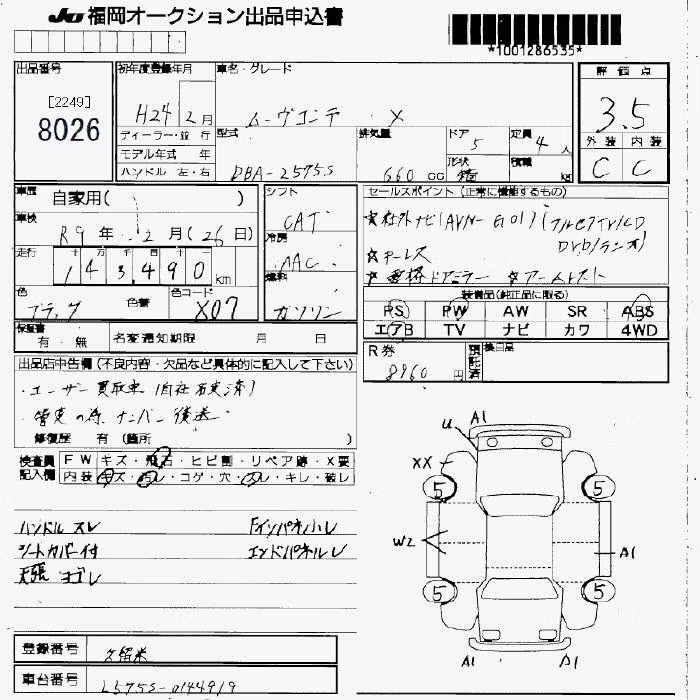 JU 福岡オークション出品申込書
*1001286535*
出品番号
[2249]
8026
初年度登録年月
H24 2月
車名・グレード
ムーヴコンテ X
評価点
3.5
外装 内装
C C
ディーラー・並行
モデル年式 年
ハンドル 左・右
型式
DBA-L575S
排気量
660 CC
ドア
5
形状
箱
定員
4人
積載
kg
車歴
自家用( )
車検
R9年 2月(26日)
走行
十 万 千 百 十
143,490 km
色
ブラック
色替
色コード
X07
シフト
CAT
冷房
AAC
燃料
ガソリン
セールスポイント(正常に機能するもの)
☆社外ナビ(AVN-G01)(フルセグTV/CD
DVD/ラジオ)
☆キーレス
☆電格ドアミラー ☆アームレスト
装備品(純正品に限る)
PS PW AW SR ABS
エアB TV ナビ カワ 4WD
保証書
有・無
名変通知期限 月 日
R券
8960円
預託済
後日品
出品店申告欄(不良内容・欠品など具体的に記入して下さい)
・ユーザー買取車(自社名変済)
・管変の為、ナンバー後送
修復歴 有(箇所 )
検査員記入欄
FW キズ・飛石・ヒビ割・リペア跡・X要
内装 キズ・汚レ・コゲ・穴・スレ・キレ・破レ
ハンドルスレ
Fインパネ小レ
シートカバー付
エンドパネルレ
天張ヨゴレ
A1
U
XX
5
5
W2
A1
5
5
A1
登録番号
久留米
車台番号
L575S-0144919